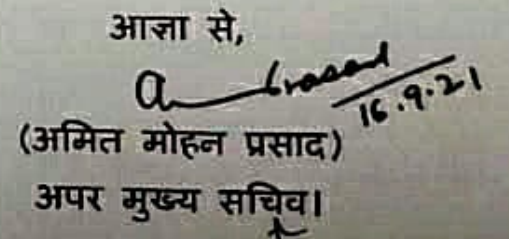 आज्ञा से,
16.9.21
(अमित मोहन प्रसाद)
अपर मुख्य सचिव।